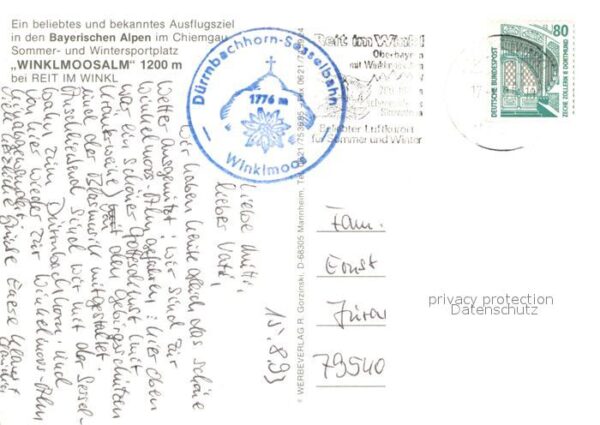 Ein beliebtes und bekanntes Ausflugsziel
in den Bayerischen Alpen im Chiemgau
Sommer- und Wintersportplatz
„WINKLMOOSALM" 1200 m
bei REIT IM WINKL
Dürrnbachhorn-Sesselbahn
1776 m
Winklmoos
Reit im Winkl
Oberbayern
mit Winklmoosalm
Beliebter Luftkurort
für Sommer und Winter
80
DEUTSCHE BUNDESPOST
ZECHE ZOLLERN II DORTMUND
© WERBEVERLAG R. Gorzinski, D-68305 Mannheim, Tel. 0621/753685, Fax 0621/
15.8.93
Liebe Mutti,
lieber Vati,
wir haben heute gleich das schöne
Wetter ausgenützt. Wir sind zur
Winkelmoos-Alm gefahren. Hier oben
war ein schöner Gottesdienst mit
den Gebirgsschützen
und der Blasmusik mitgestaltet.
Anschließend sind wir mit der Sessel-
bahn zum Dürrnbachhorn und
von hier wieder zur Winkelmoos-Alm
Herzliche Grüße Euere
Fam.
Ernst
79540
privacy protection
Datenschutz